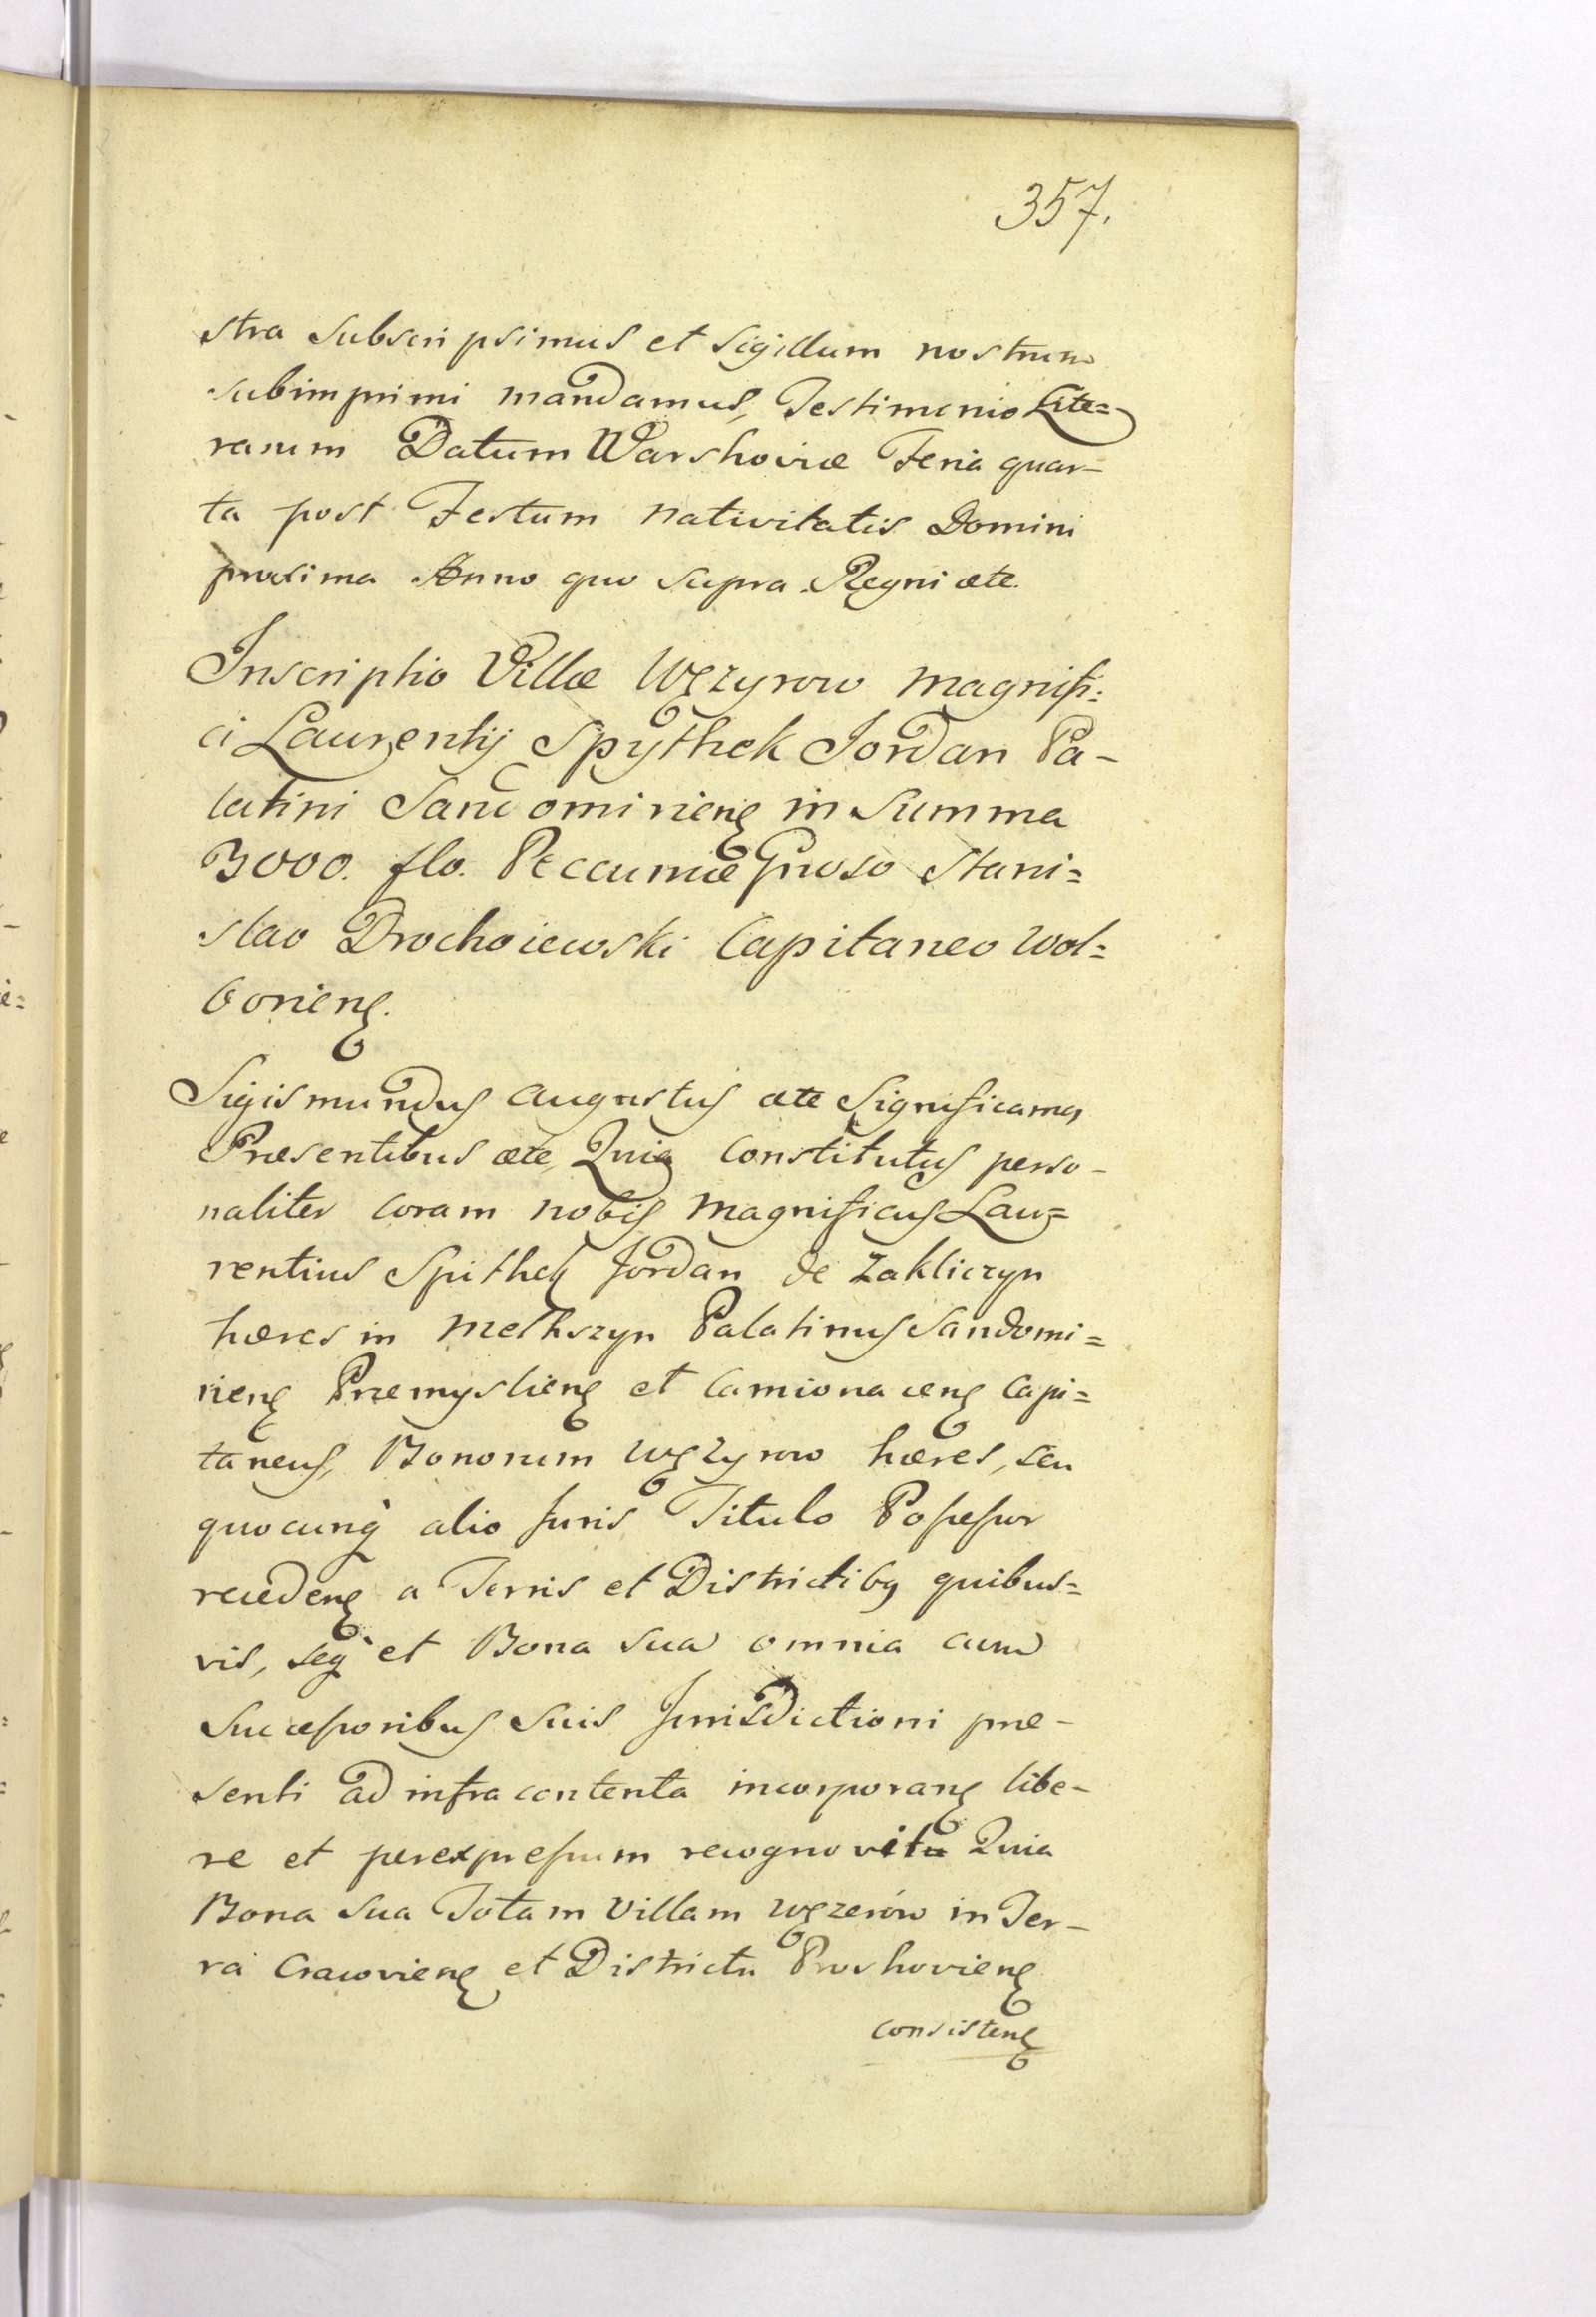 357.
stra subscripsimus et Sigillum nostrum
subimprimi mandamus, Testimonio Lite=
rarum Datum Warshoviæ Feria quar-
ta post Festum nativitatis Domini
proxima Anno quo supra. Regni ætc.
Inscriptio Villæ Węzyrow magnifi=
ci Laurentij Spythek Jordan Pa-
latini Sandomirienę in Summa
3000. flo. Peccuniæ Gnoso Stani=
slao Drochoiewski Capitaneo Wol=
borienę.
Sigismundus Augustus ætc Significamus
Præsentibus ætc, Quia Constitutus perso-
naliter coram nobis magnificus Lau=
rentius Spithek Jordan de Zakliczyn
hæres in Melhszyn Palatinus Sandomi=
rienę Præmyslienę et Camionacenę Capi=
taneus, Bonorum Węzyrow hæres, seu
quocunq̀ alio Juris Titulo Possessor
recedenę a Terris et Districtibus quibus=
vis, seq̀ et Bona sua omnia cum
Successoribus suis Jurisdictioni præ-
senti ad infra contenta incorporanę libe-
re et per expressum recognovit Quia
Bona sua Totam Villam Węzerów in Ter-
ra Cracovienę et Districtu Proshovienę
consistenę